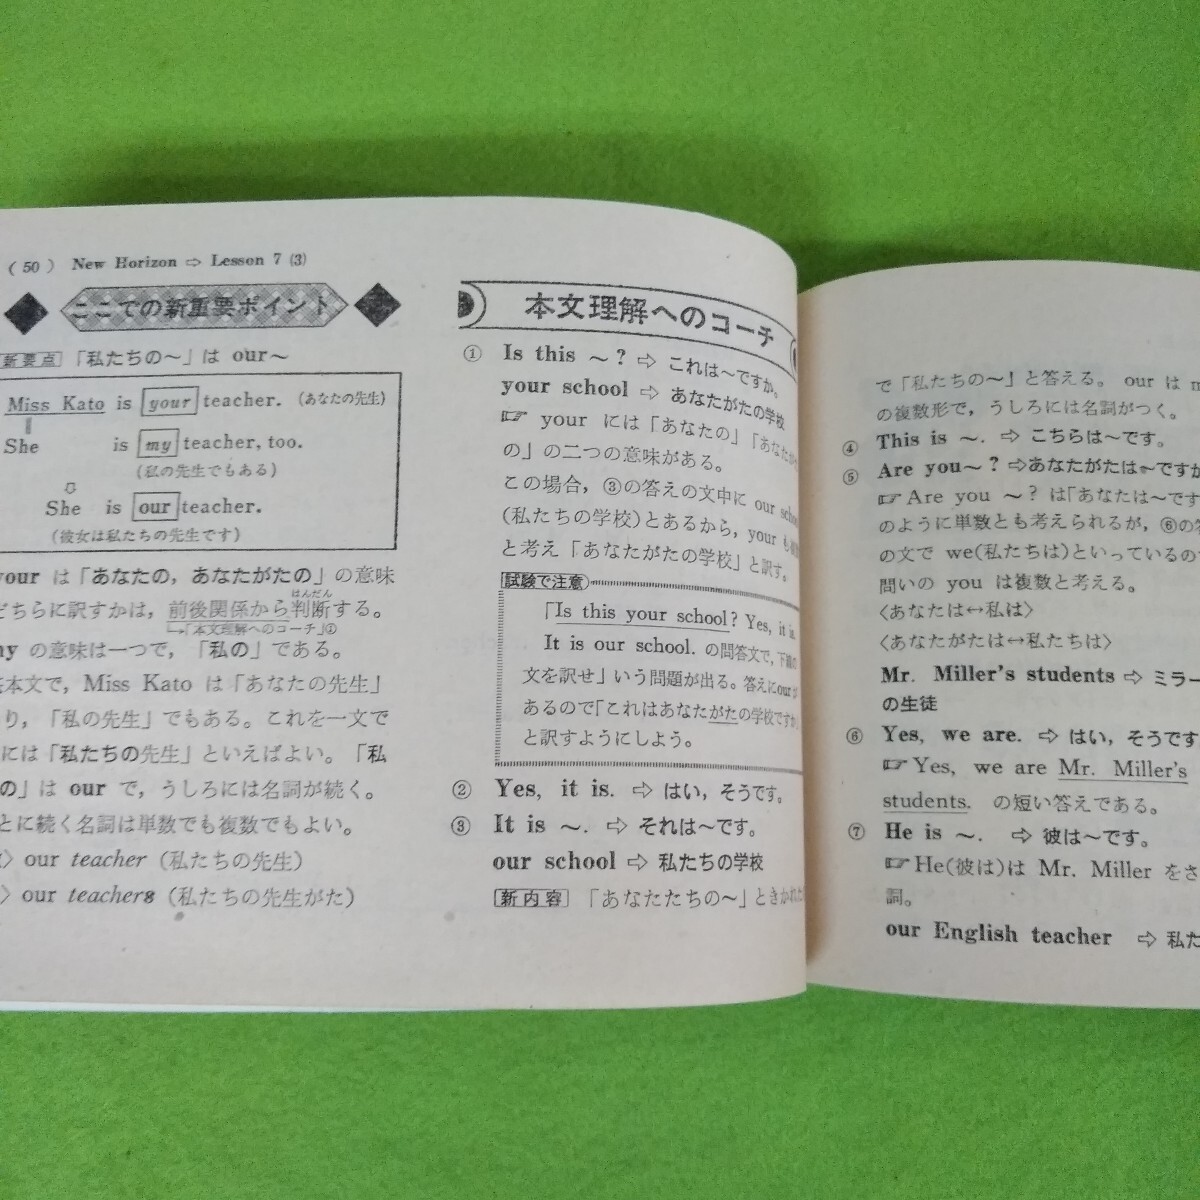 ( 50 ) New Horizon ⇨ Lesson 7 (3)
ここでの新重要ポイント
新要点 「私たちの〜」は our〜
Miss Kato is your teacher. (あなたの先生)
She is my teacher, too.
(私の先生でもある)
She is our teacher.
(彼女は私たちの先生です)
your は「あなたの，あなたがたの」の意味
どちらに訳すかは，前後関係から判断する。
はんだん
「本文理解へのコーチ」①
my の意味は一つで，「私の」である。
本文で，Miss Kato は「あなたの先生」
り，「私の先生」でもある。これを一文で
には「私たちの先生」といえばよい。「私
の」は our で，うしろには名詞が続く。
とに続く名詞は単数でも複数でもよい。
〉our teacher (私たちの先生)
〉our teachers (私たちの先生がた)
本文理解へのコーチ
① Is this 〜 ? ⇨ これは〜ですか。
your school ⇨ あなたがたの学校
☞ your には「あなたの」「あなたが
の」の二つの意味がある。
この場合，③の答えの文中に our school
(私たちの学校)とあるから，your も
と考え「あなたがたの学校」と訳す。
試験で注意
「Is this your school? Yes, it is.
It is our school. の問答文で，下線の
文を訳せ」いう問題が出る。答えにour が
あるので「これはあなたがたの学校ですか」
と訳すようにしよう。
② Yes, it is. ⇨ はい，そうです。
③ It is 〜. ⇨ それは〜です。
our school ⇨ 私たちの学校
新内容 「あなたたちの〜」ときかれた
で「私たちの〜」と答える。 our は m
の複数形で，うしろには名詞がつく。
④ This is 〜. ⇨ こちらは〜です。
⑤ Are you〜 ? ⇨あなたがたは〜ですか
☞ Are you 〜 ? は「あなたは〜です
のように単数とも考えられるが，⑥の答
の文で we(私たちは)といっているので
問いの you は複数と考える。
〈あなたは↔私は〉
〈あなたがたは↔私たちは〉
Mr. Miller's students ⇨ ミラー
の生徒
⑥ Yes, we are. ⇨ はい，そうです
☞ Yes, we are Mr. Miller's
students. の短い答えである。
⑦ He is 〜. ⇨ 彼は〜です。
☞ He(彼は)は Mr. Miller をさ
詞。
our English teacher ⇨ 私た